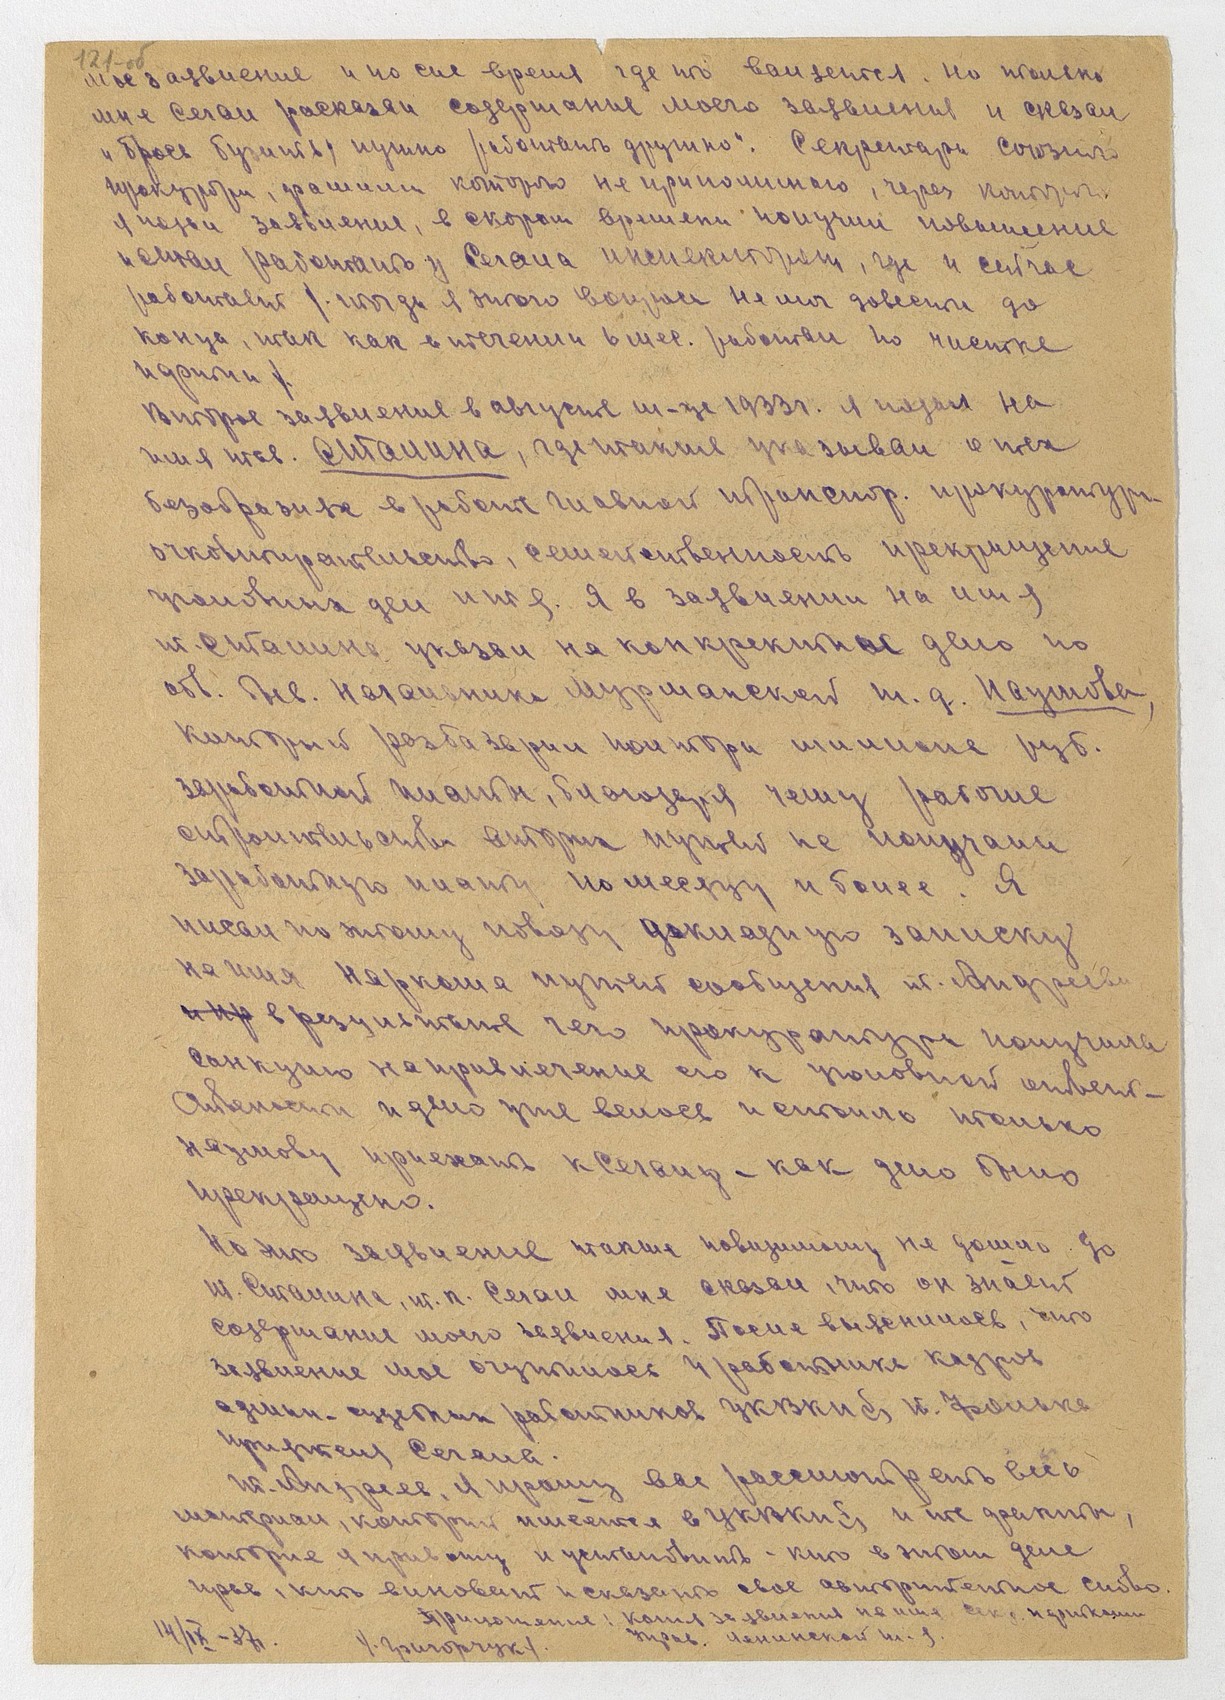 121-об
мое заявление и по сие время где то валяется. Но только
мне Сегал расказал содержание моего заявления и сказал
"брось бузить, нужно работать дружно". Секретарь союзного
прокурора, фамили которого не припоминаю, через которого
я подал заявление, в скором времени получил повышение
и стал работать у Сегала инспектором, где и сейчас
работает /. тогда я этого вопроса не мог довести до
конца, так как в течении 6 мес. работал по чистке
партии /.
Второе заявление в августе м-це 1933 г. я подал на
имя тов. Сталина, где также указывал о тех
безобразиях в работе главной транспор. прокуратуры-
очковтирательство, семейственность прекращение
уголовных дел и т д. Я в заявлении на имя
т. Сталина указал на конкректное дело по
обв. Зав. Начальника Мурманской ж. д. Наумова,
который разбазарил полтора милиона руб.
заработной платы, благодаря чему рабочие
строительства вторых путей не получали
заработную плату по месяцу и более. Я
писал по этому поводу докладную записку
на имя Наркома путей сообщения т. Андреева
и пр в результате чего прокуратура получила
санкцию на привлечение его к уголовной ответ-
ственности и дело уже велось и стоило только
Наумову приехать к Сегалу - как дело было
прекращено.
Но это заявление также повидимому не дошло до
т. Сталина, т. к. Сегал мне сказал, что он знает
содержание моего заявления. После выяснилось, что
заявление мое очутилось у работника кадров
админ- судебных работников ЦКВКП(б) т. Фалька
приятеля Сегала.
т. Андреев, я прошу вас рассмотреть весь
материал, который имеется в ЦКВКП(б) и те факты,
которые я привожу и установить - кто в этом деле
прав, кто виноват и сказать свое авторитетное слово.
Приложение: Копия заявления на имя Сек. парткома
Управ. Ленинской ж. д.
14/IX-37г. /. Григорчук /.